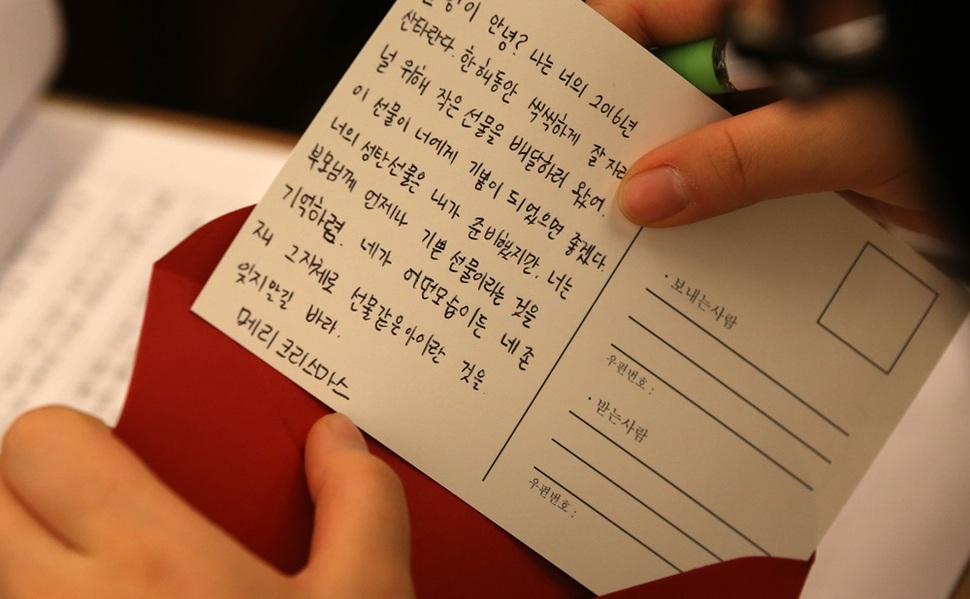 안녕? 나는 너의 2016년
산타란다. 한해동안 씩씩하게 잘 자라
널 위해 작은 선물을 배달하러 왔어.
이 선물이 너에게 기쁨이 되었으면 좋겠다.
너의 성탄선물은 내가 준비했지만, 너는
부모님께 언제나 기쁜 선물이라는 것을
기억하렴. 네가 어떤모습이든 네 존
재 그자체로 선물같은아이란 것을
잊지않길 바라.
메리크리스마스
· 보내는사람
우편번호 :
· 받는사람
우편번호 :